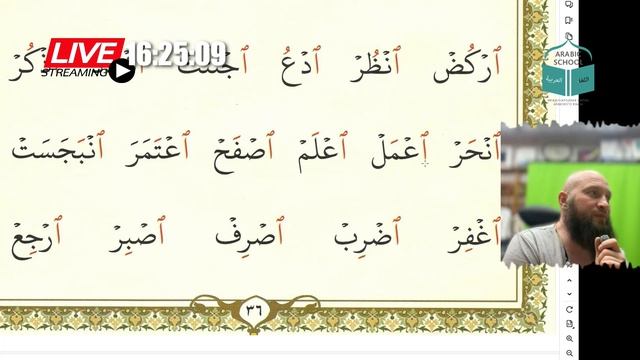 LIVE 16:25:09
STREAMING
ARABIC
SCHOOL
اللغة
العربية
ٱرْكُضْ ٱنْظُرْ ٱدْعُ
ٱنْحَرْ ٱعْمَلْ ٱعْلَمْ ٱصْفَحْ ٱعْتَمَرَ ٱنْبَجَسَتْ
ٱغْفِرْ ٱضْرِبْ ٱصْرِفْ ٱصْبِرْ ٱرْجِعْ
٣٦